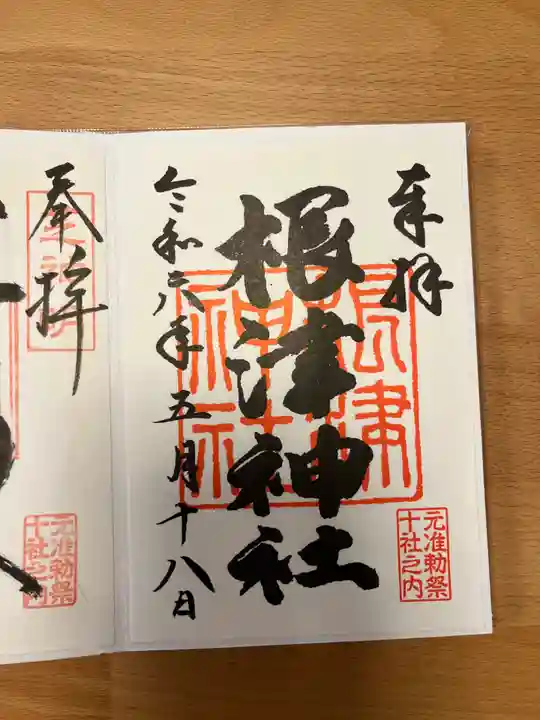 奉拝
根津神社
根津神社
元准勅祭
十社之内
令和六年五月十八日
奉拝
元准勅祭
十社之内